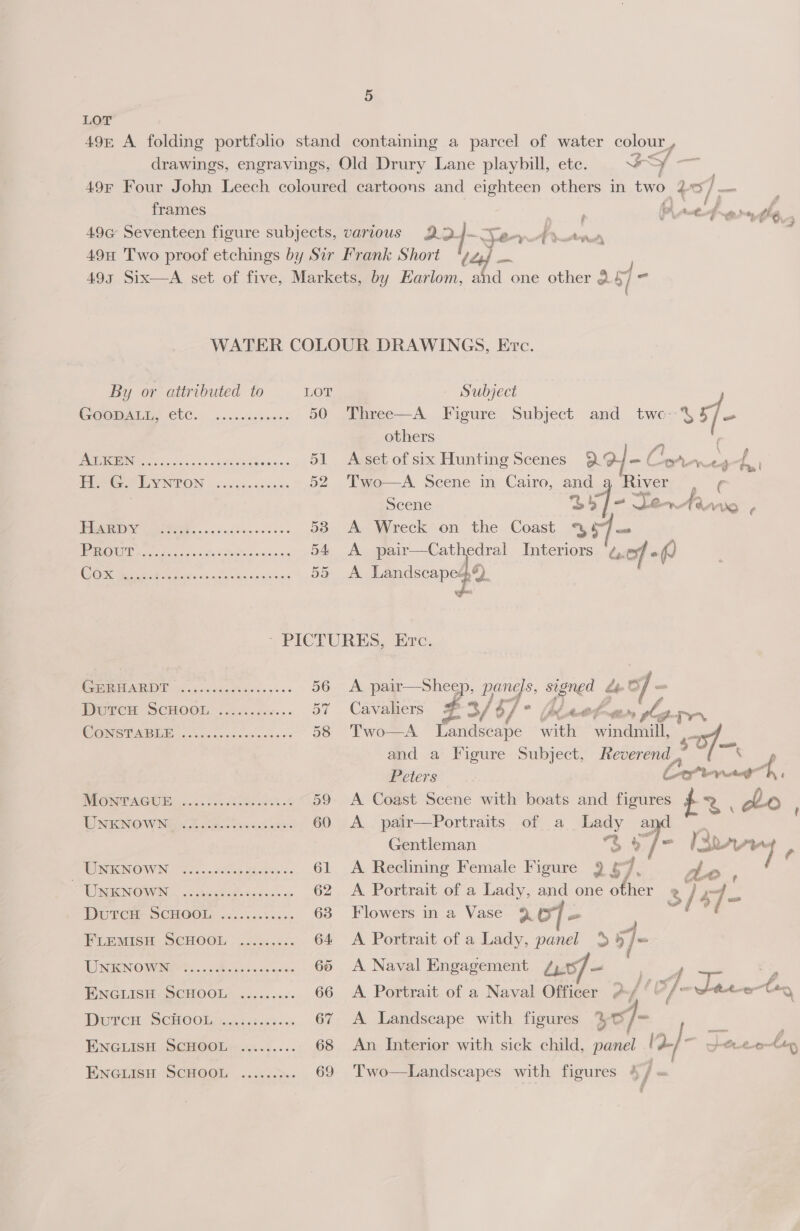 5
LOT
49E A folding portfolio stand containing a parcel of water colour
drawings, engravings, Old Drury Lane playbill, etc.
49F Four John Leech coloured cartoons and eighteen others in two
frames
49G Seventeen figure subjects, various 22/-
49H Two proof etchings by Sir Frank Short
49J Six—A set of five, Markets, by Earlom, and one other 25/-
WATER COLOUR DRAWINGS, ETC.
By or attributed to LOT Subject
GOODALL, etc. ............ 50 Three—A Figure Subject and two 35/-
others
ALKEN ........................ 51 A set of six Hunting Scenes 22/-
H. G. LYNTON ............ 52 Two—A Scene in Cairo, and a River
Scene 35/-
HARDY ..................... 53 A Wreck on the Coast 35/-
PROUT ..................... 54 A pair—Cathedral Interiors
COX ........................ 55 A Landscape
PICTURES, ETC.
GERHARDT .................. 56 A pair—Sheep, panels, signed
DUTCH SCHOOL ............ 57 Cavaliers £3/5/-
CONSTABLE .................. 58 Two—A Landscape with windmill,
and a Figure Subject, Reverend
Peters
MONTAGUE .................. 59 A Coast Scene with boats and figures do
UNKNOWN .................. 60 A pair—Portraits of a Lady and
Gentleman 35/-
UNKNOWN .................. 61 A Reclining Female Figure 25/. do
UNKNOWN .................. 62 A Portrait of a Lady, and one other
DUTCH SCHOOL ............ 63 Flowers in a Vase 20/-
FLEMISH SCHOOL ......... 64 A Portrait of a Lady, panel 35/-
UNKNOWN .................. 65 A Naval Engagement
ENGLISH SCHOOL ......... 66 A Portrait of a Naval Officer
DUTCH SCHOOL ............ 67 A Landscape with figures 30/-
ENGLISH SCHOOL ......... 68 An Interior with sick child, panel 12/-
ENGLISH SCHOOL ......... 69 Two—Landscapes with figures